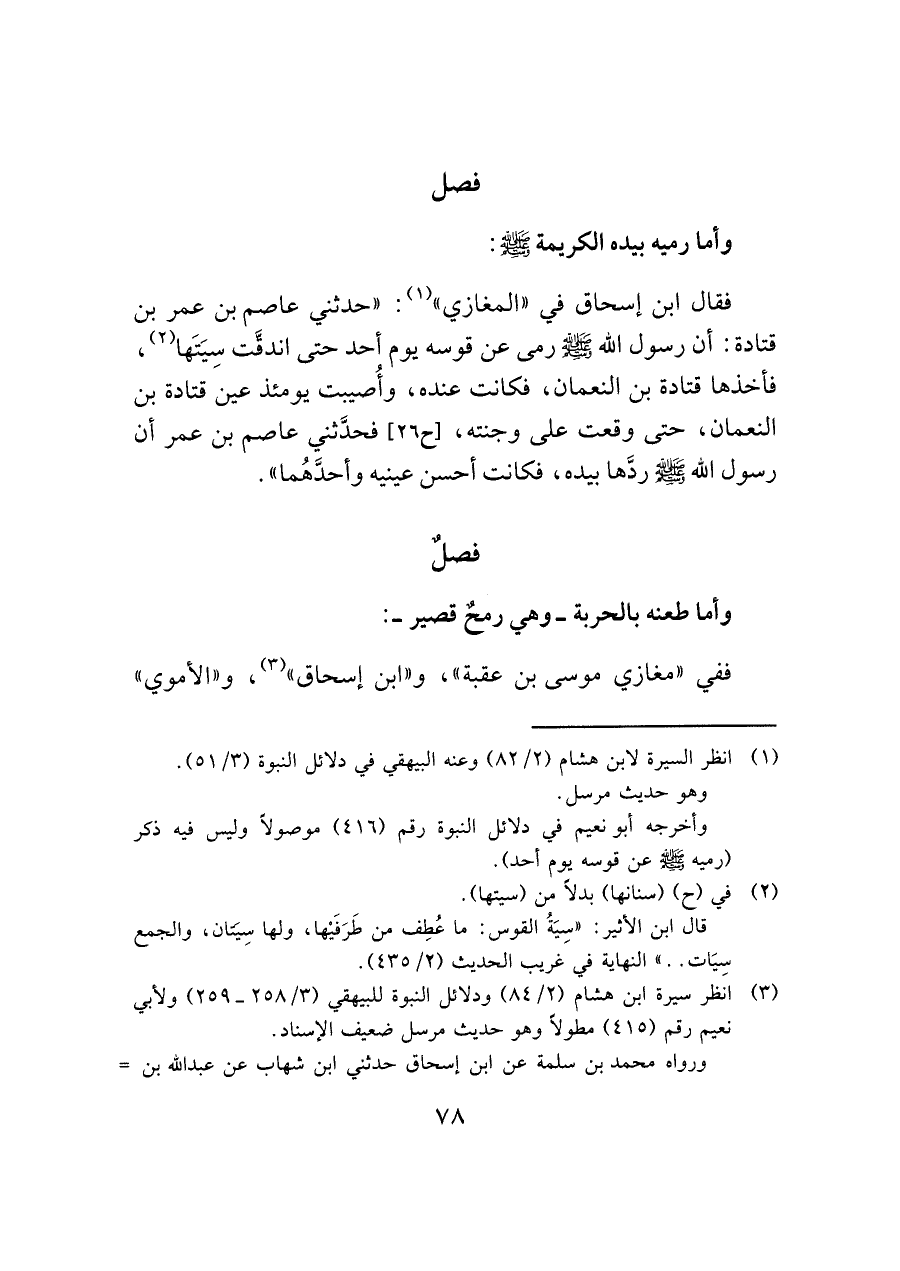 فصل
وأما رميه بيده الكريمة ﷺ:
فقال ابن إسحاق في «المغازي»(١): «حدثني عاصم بن عمر بن
قتادة: أن رسول الله ﷺ رمى عن قوسه يوم أحد حتى اندقَّت سِيَتَها(٢)،
فأخذها قتادة بن النعمان، فكانت عنده، وأُصيبت يومئذ عين قتادة بن
النعمان، حتى وقعت على وجنته، [ح٢٦] فحدَّثني عاصم بن عمر أن
رسول الله ﷺ ردَّها بيده، فكانت أحسن عينيه وأحدَّهُما».
فصلٌ
وأما طعنه بالحربة ـ وهي رمحٌ قصير ـ:
ففي «مغازي موسى بن عقبة»، و«ابن إسحاق»(٣)، و«الأموي»
(١) انظر السيرة لابن هشام (٢/ ٨٢) وعنه البيهقي في دلائل النبوة (٣/ ٥١).
وهو حديث مرسل.
وأخرجه أبو نعيم في دلائل النبوة رقم (٤١٦) موصولاً وليس فيه ذكر
(رميه ﷺ عن قوسه يوم أحد).
(٢) في (ح) (سنانها) بدلاً من (سيتها).
قال ابن الأثير: «سِيَةُ القوس: ما عُطِف من طَرَفَيْها، ولها سِيَتان، والجمع
سِيَات..» النهاية في غريب الحديث (٢/ ٤٣٥).
(٣) انظر سيرة ابن هشام (٢/ ٨٤) ودلائل النبوة للبيهقي (٣/ ٢٥٨ ـ ٢٥٩) ولأبي
نعيم رقم (٤١٥) مطولاً وهو حديث مرسل ضعيف الإسناد.
ورواه محمد بن سلمة عن ابن إسحاق حدثني ابن شهاب عن عبدالله بن =
٧٨